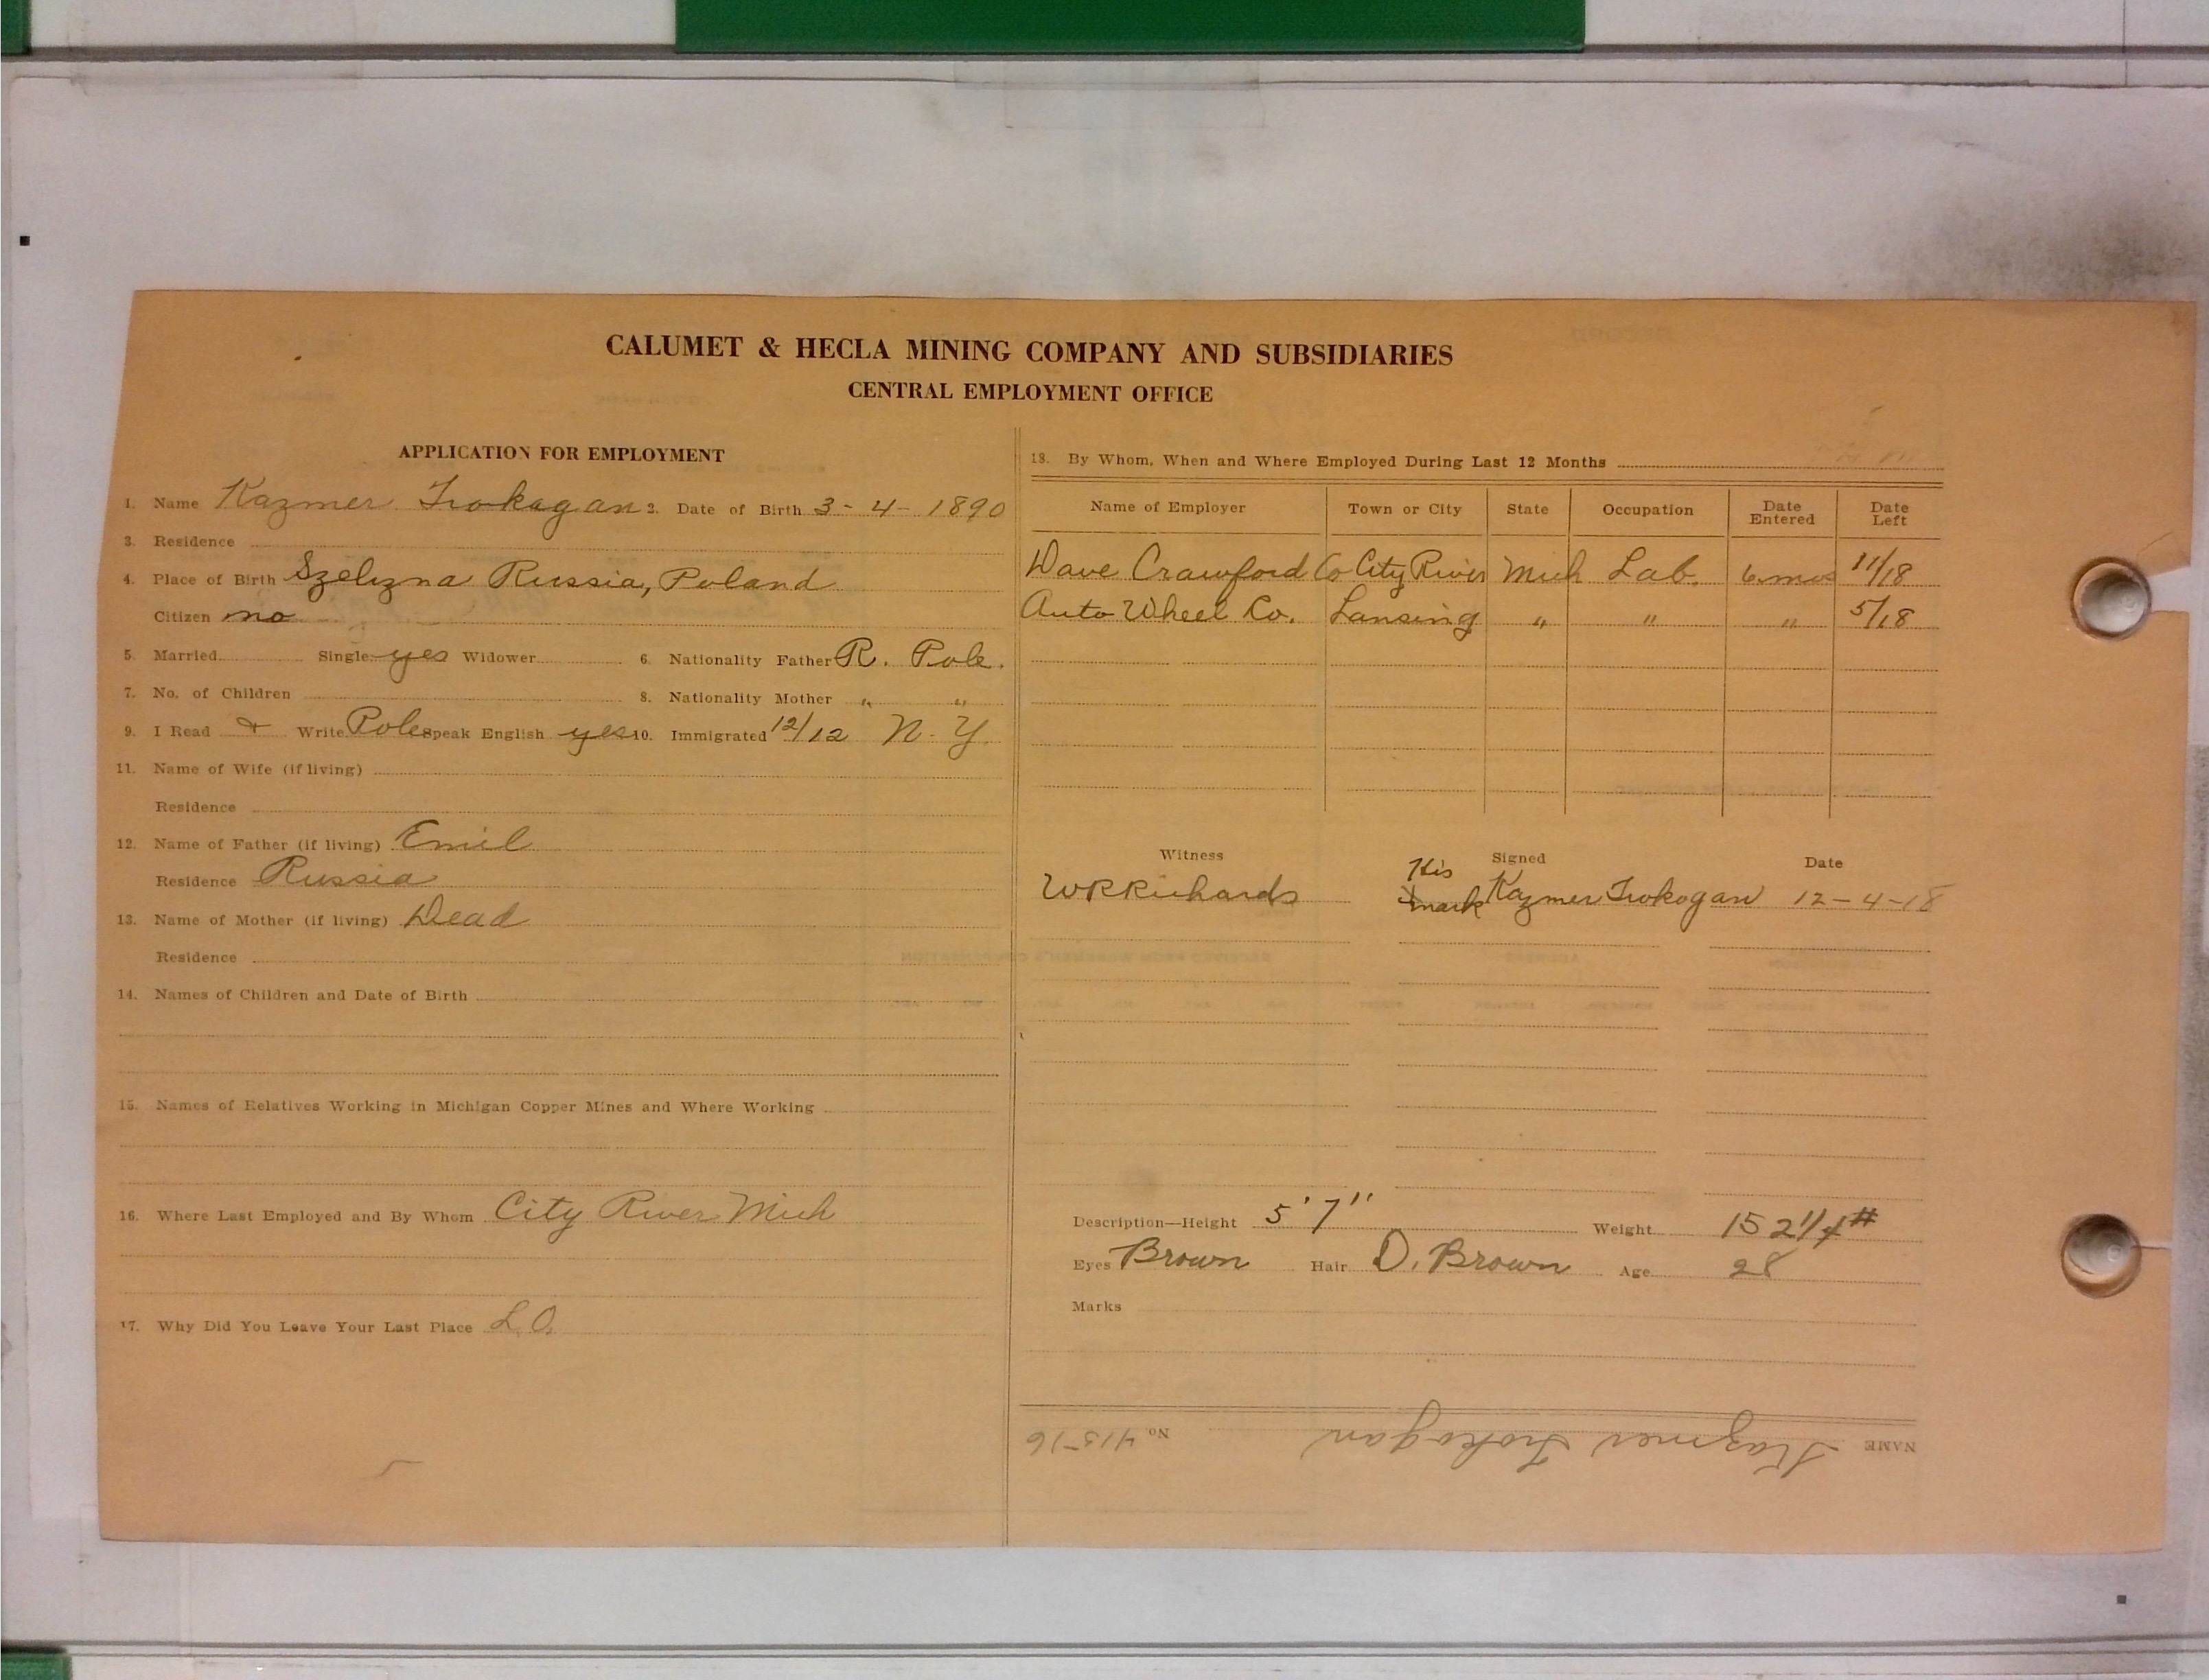 CALUMET & HECLA MINING COMPANY AND SUBSIDIARIES
CENTRAL EMPLOYMENT OFFICE
APPLICATION FOR EMPLOYMENT
1. Name Kazmer Trokagan 2. Date of Birth 3-4-1890
3. Residence
4. Place of Birth Szelizna Russia, Poland
Citizen no
5. Married Single yes Widower 6. Nationality Father R. Pole.
7. No. of Children 8. Nationality Mother " "
9. I Read + Write Pole Speak English yes 10. Immigrated 12/12 N.Y.
11. Name of Wife (if living)
Residence
12. Name of Father (if living) Emil
Residence Russia
13. Name of Mother (if living) Dead
Residence
14. Names of Children and Date of Birth
15. Names of Relatives Working in Michigan Copper Mines and Where Working
16. Where Last Employed and By Whom City River Mich
17. Why Did You Leave Your Last Place L.O.
18. By Whom, When and Where Employed During Last 12 Months
Name of Employer Town or City State Occupation Date Entered Date Left
Dave Crawford Co City River Mich Lab. 6 mos 11/18
Auto Wheel Co. Lansing " " " 5/18
Witness Signed Date
WR Richards His x mark Kazmer Trokogan 12-4-18
Description—Height 5' 7" Weight 152 1/4 #
Eyes Brown Hair D. Brown Age 28
Marks
NAME Kazmer Trokogan No. 41576